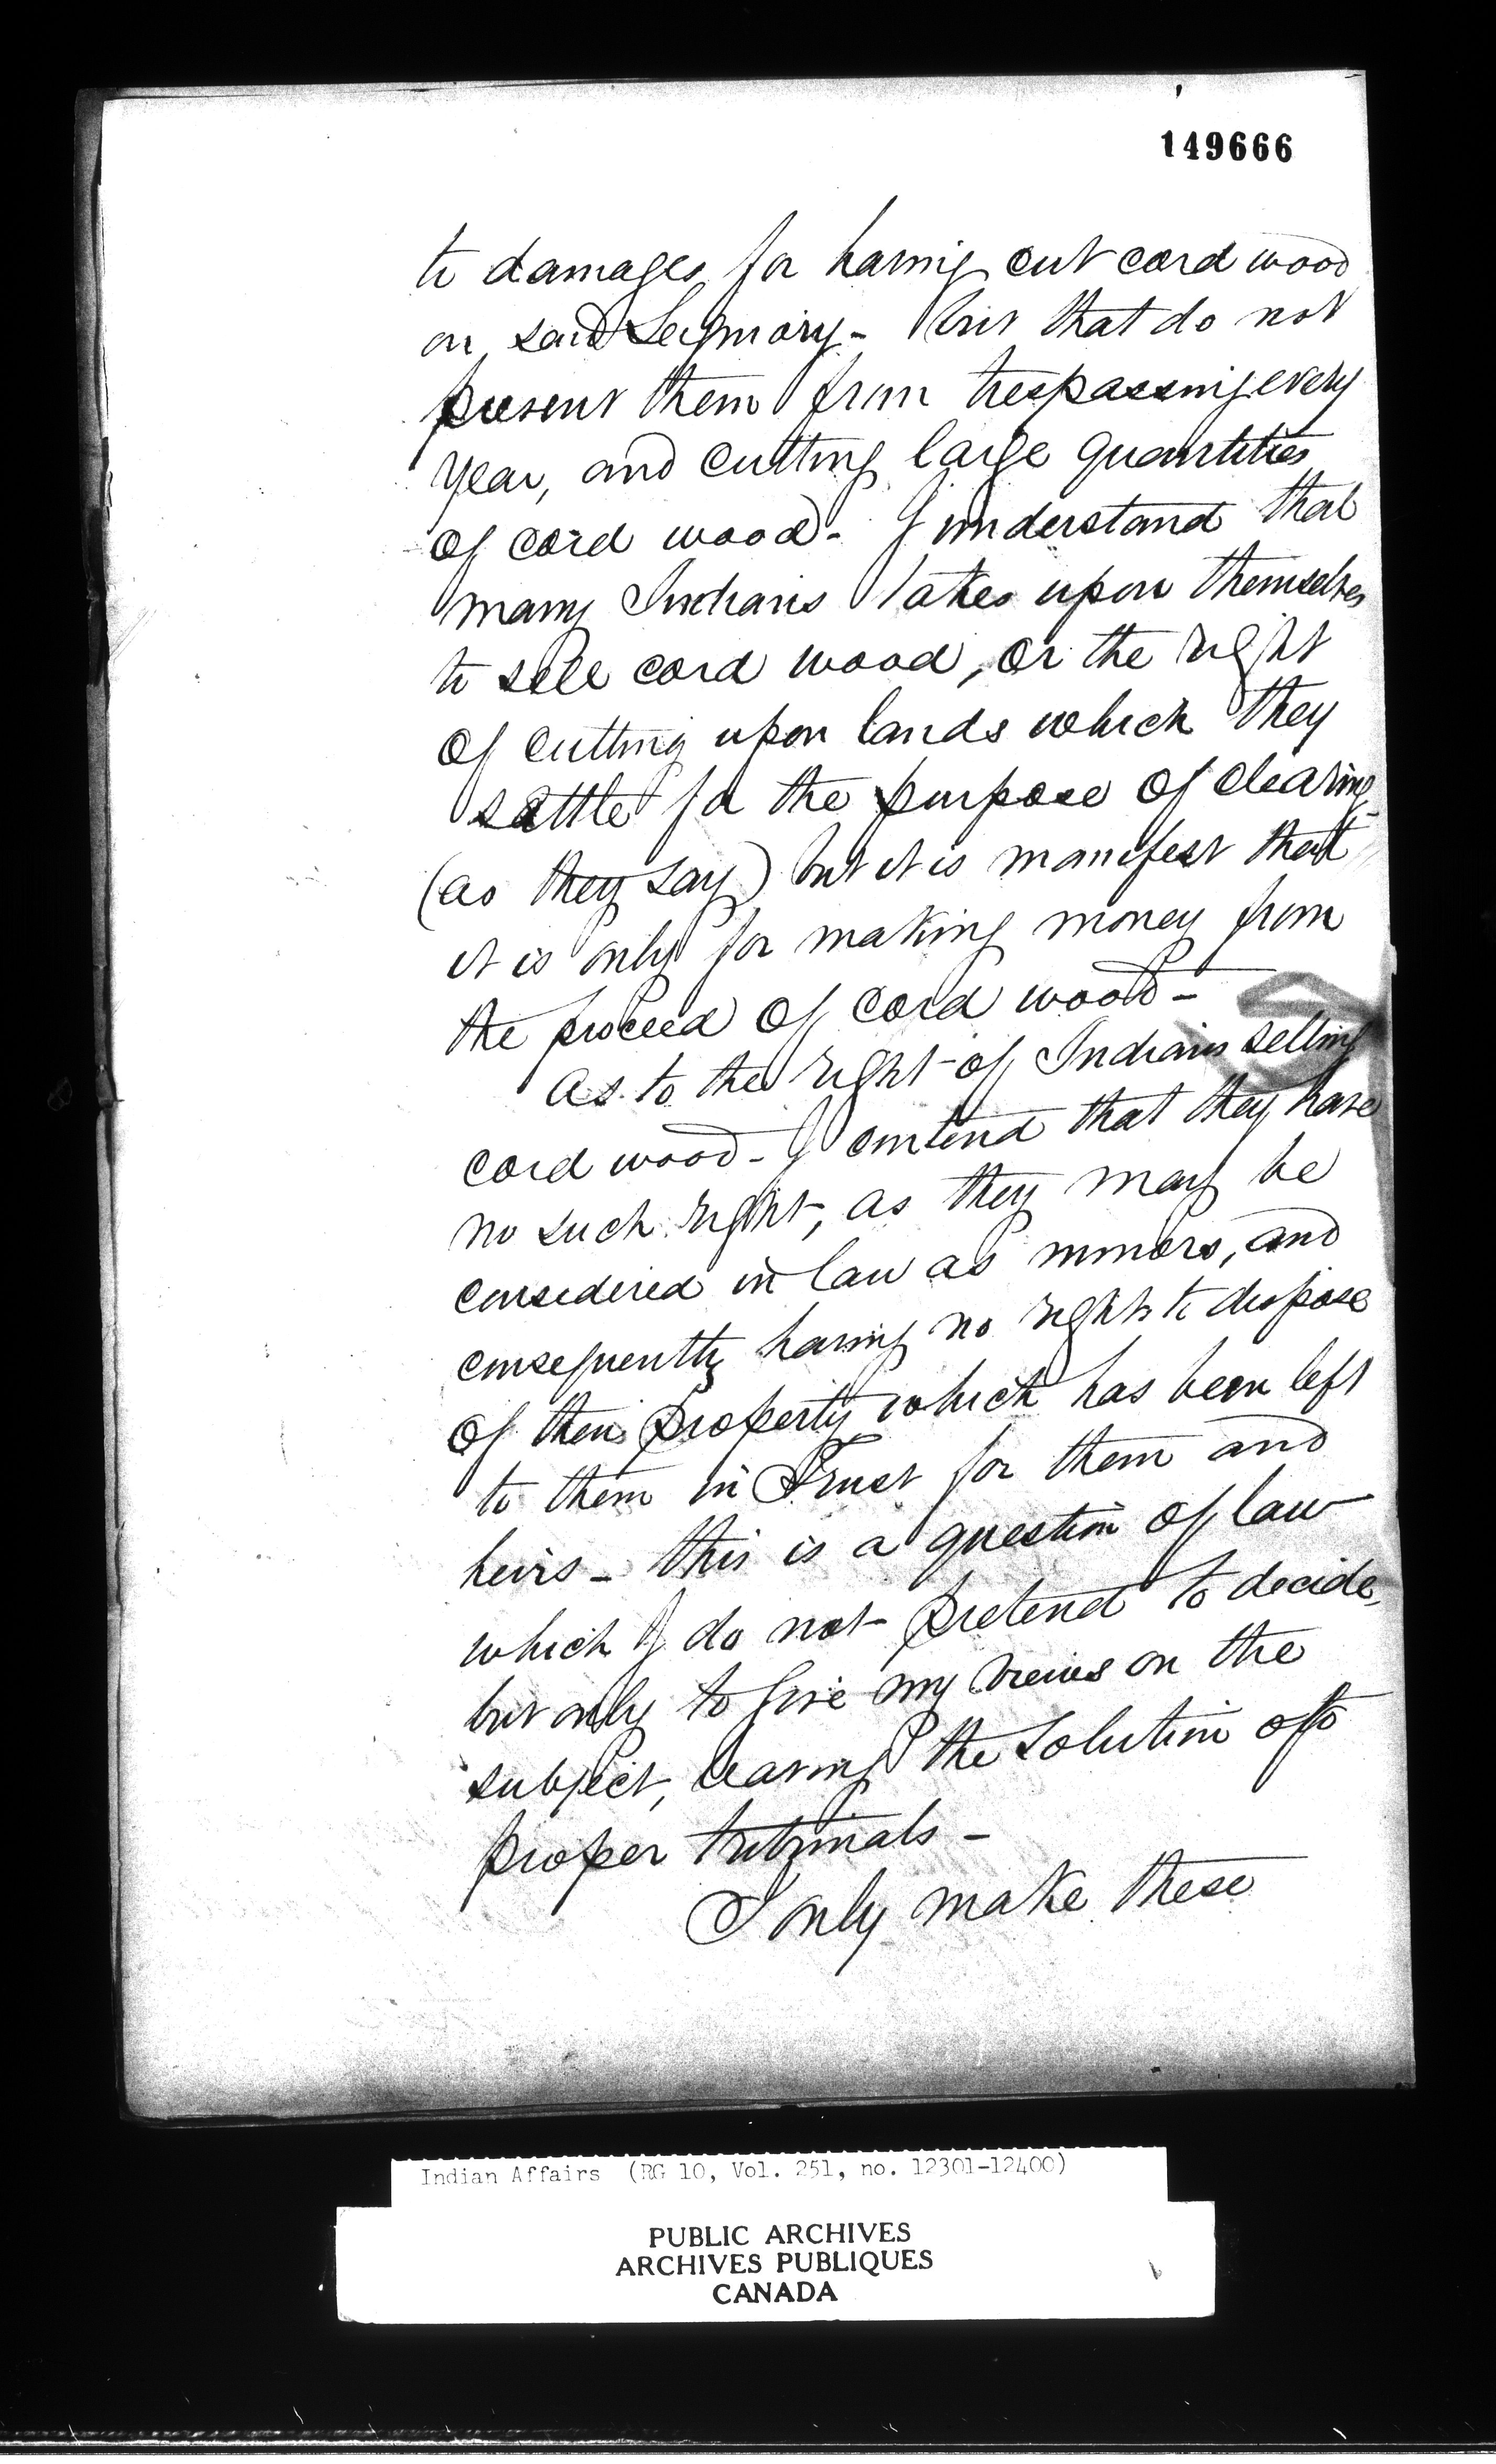 149666
to damages for having cut cord wood
on said Seigniory - but that do not
prevent them from trespassing every
year, and cutting large quantities
of cord wood - I understand that
many Indians takes upon themselves
to sell cord wood, or the right
of cutting upon lands which they
settle for the purpose of clearing -
(as they say) but it is manifest that
it is only for making money from
the proceed of cord wood -
As to the right of Indians selling
cord wood - I contend that they have
no such right, as they may be
considered in law as minors, and
consequently having no rights to dispose
of their property which has been left
to them in Trust for them and
heirs - this is a question of law
which I do not pretend to decide,
but only to give my views on the
subject, leaving the solution to
proper tribunals -
I only make these
Indian Affairs (RG 10, Vol. 251, no. 12301-12400)
PUBLIC ARCHIVES
ARCHIVES PUBLIQUES
CANADA